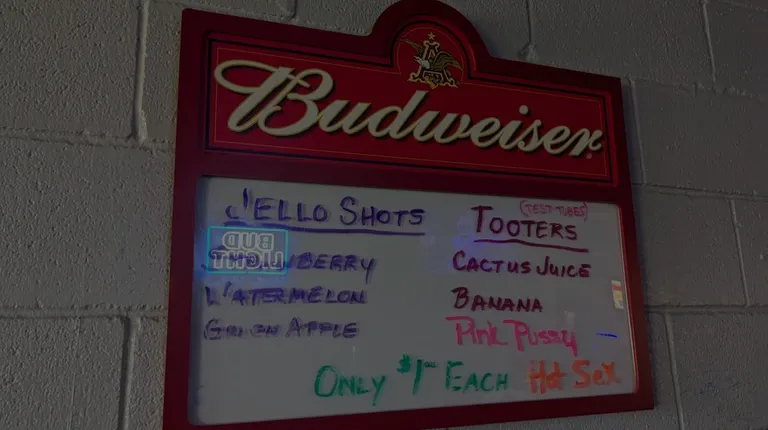 Budweiser
JELLO SHOTS
STRAWBERRY
WATERMELON
GREEN APPLE
(TEST TUBES)
TOOTERS
CACTUS JUICE
BANANA
Pink Pussy
Hot Sex
ONLY $1 EACH
BUD
LIGHT